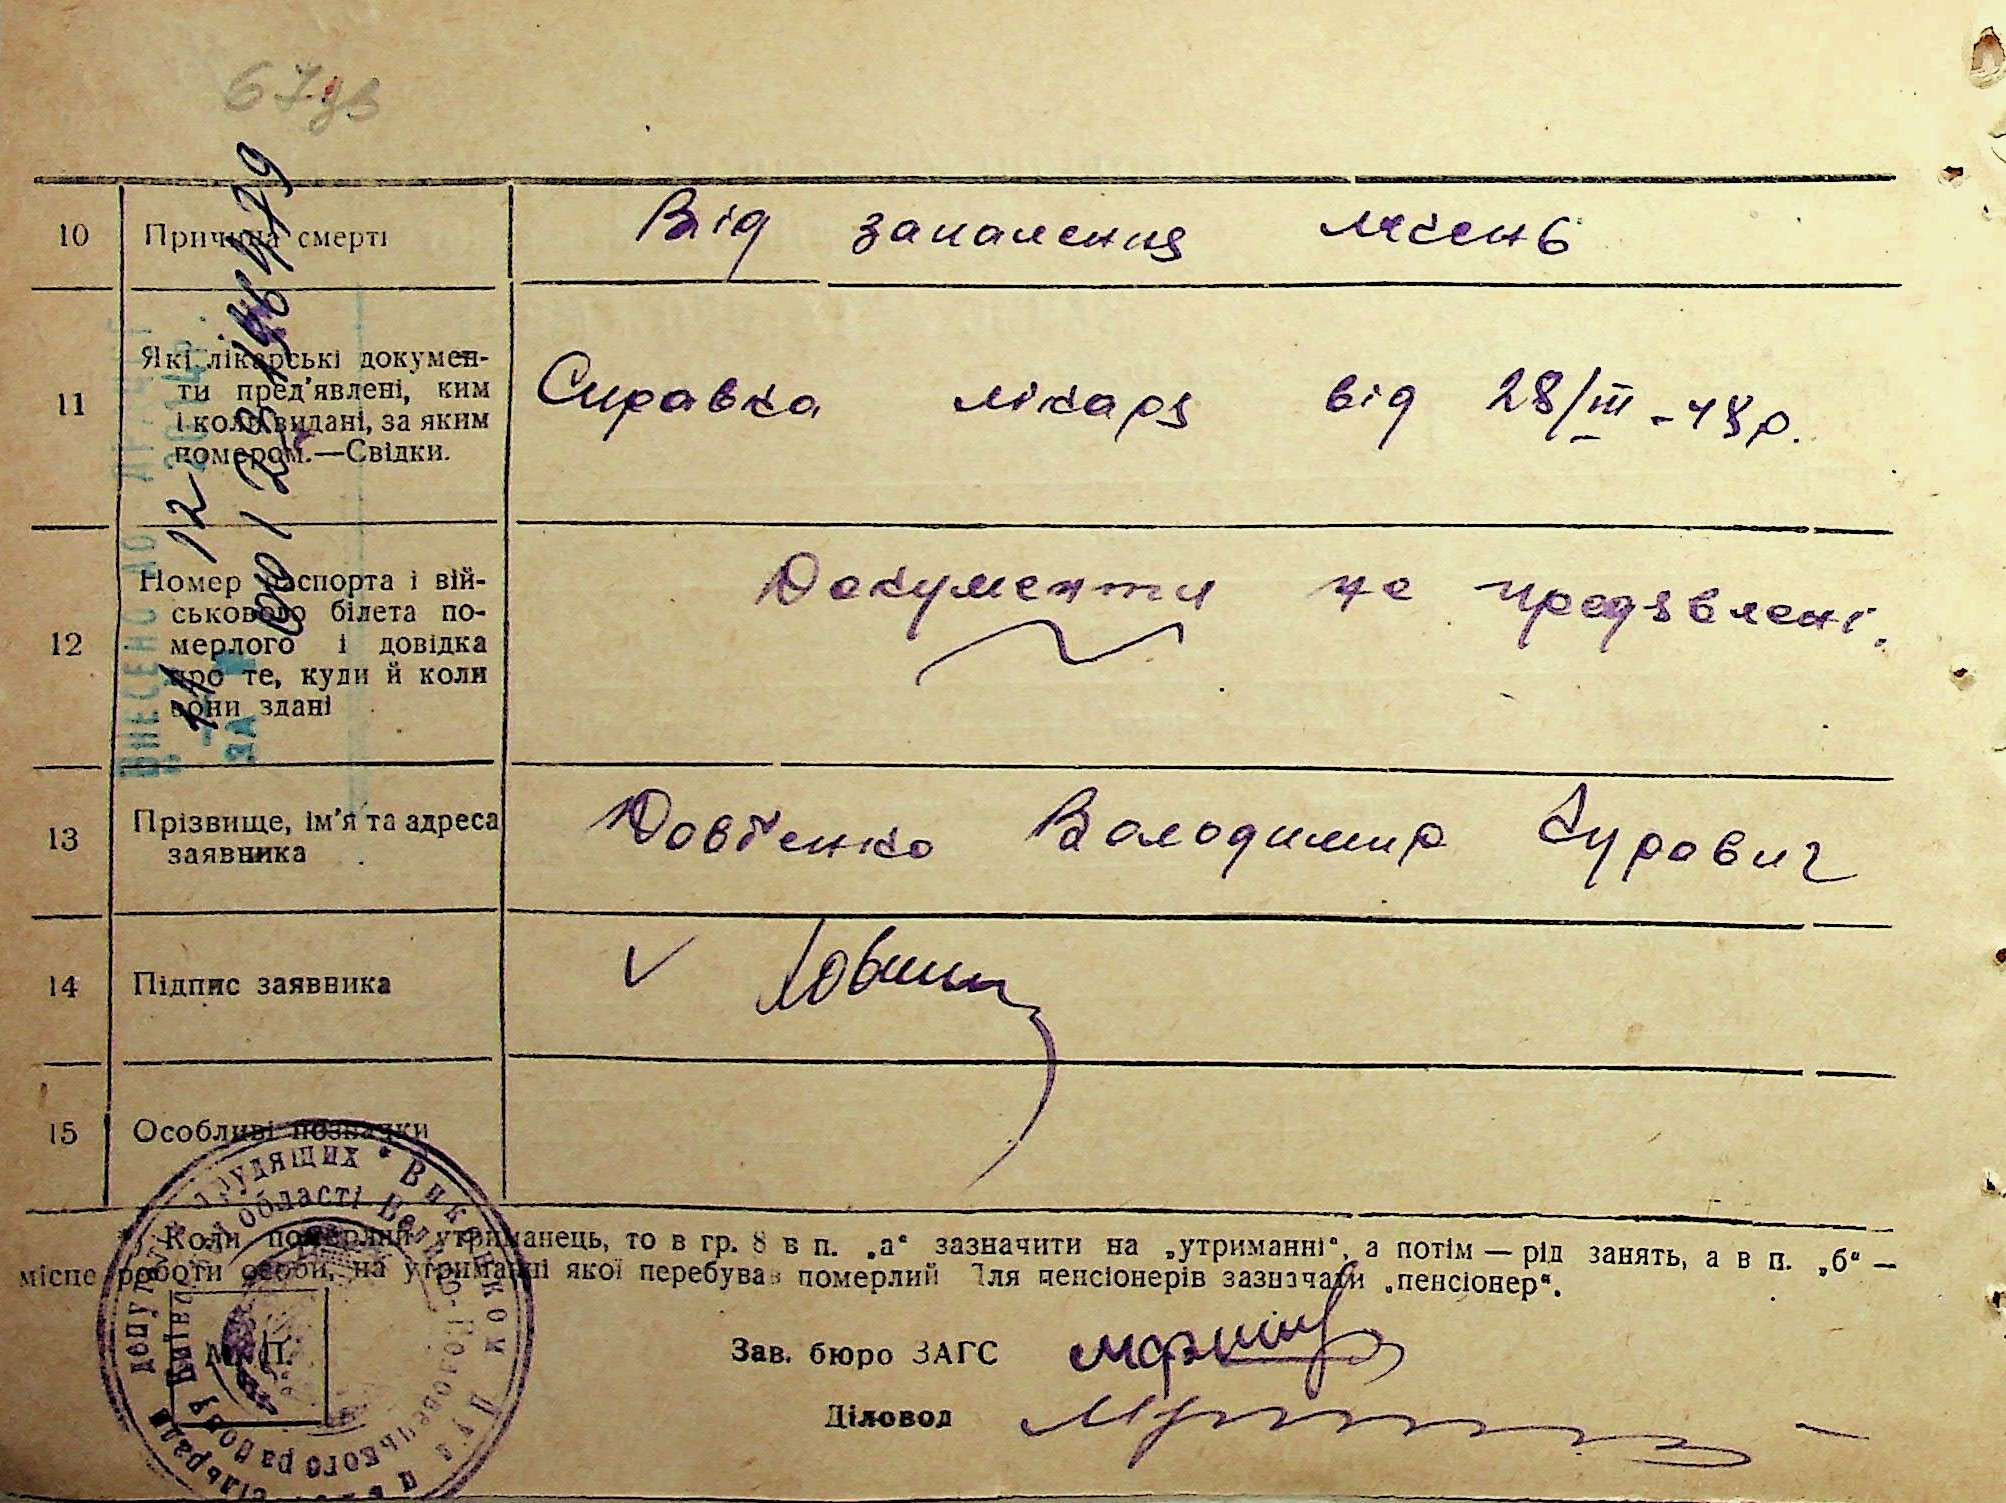 67зв
10 Причина смерті Від запалення легень
11 Які лікарські докумен-
ти пред'явлені, ким
і коли видані, за яким
номером.—Свідки.
Справка лікаря від 28/III - 48 р.
12 Номер паспорта і вій-
ськового білета по-
мерлого і довідка
про те, куди й коли
вони здані
Документи не предявлені.
13 Прізвище, ім'я та адреса
заявника
Довбенко Володимир Гурович
14 Підпис заявника
15 Особливі позначки
Коли померлий утриманець, то в гр. 8 в п. „а“ зазначити на „утриманні“, а потім — рід занять, а в п. „б“ —
місце роботи особи, на утриманні якої перебував померлий Для пенсіонерів зазначати „пенсіонер“.
М. П.
Зав. бюро ЗАГС
Діловод
ВНЕСЕНО ДО
ЗА
12
00123196479
депутатів трудящих * Виконком
сільради
області Велико-Половецького району Київ